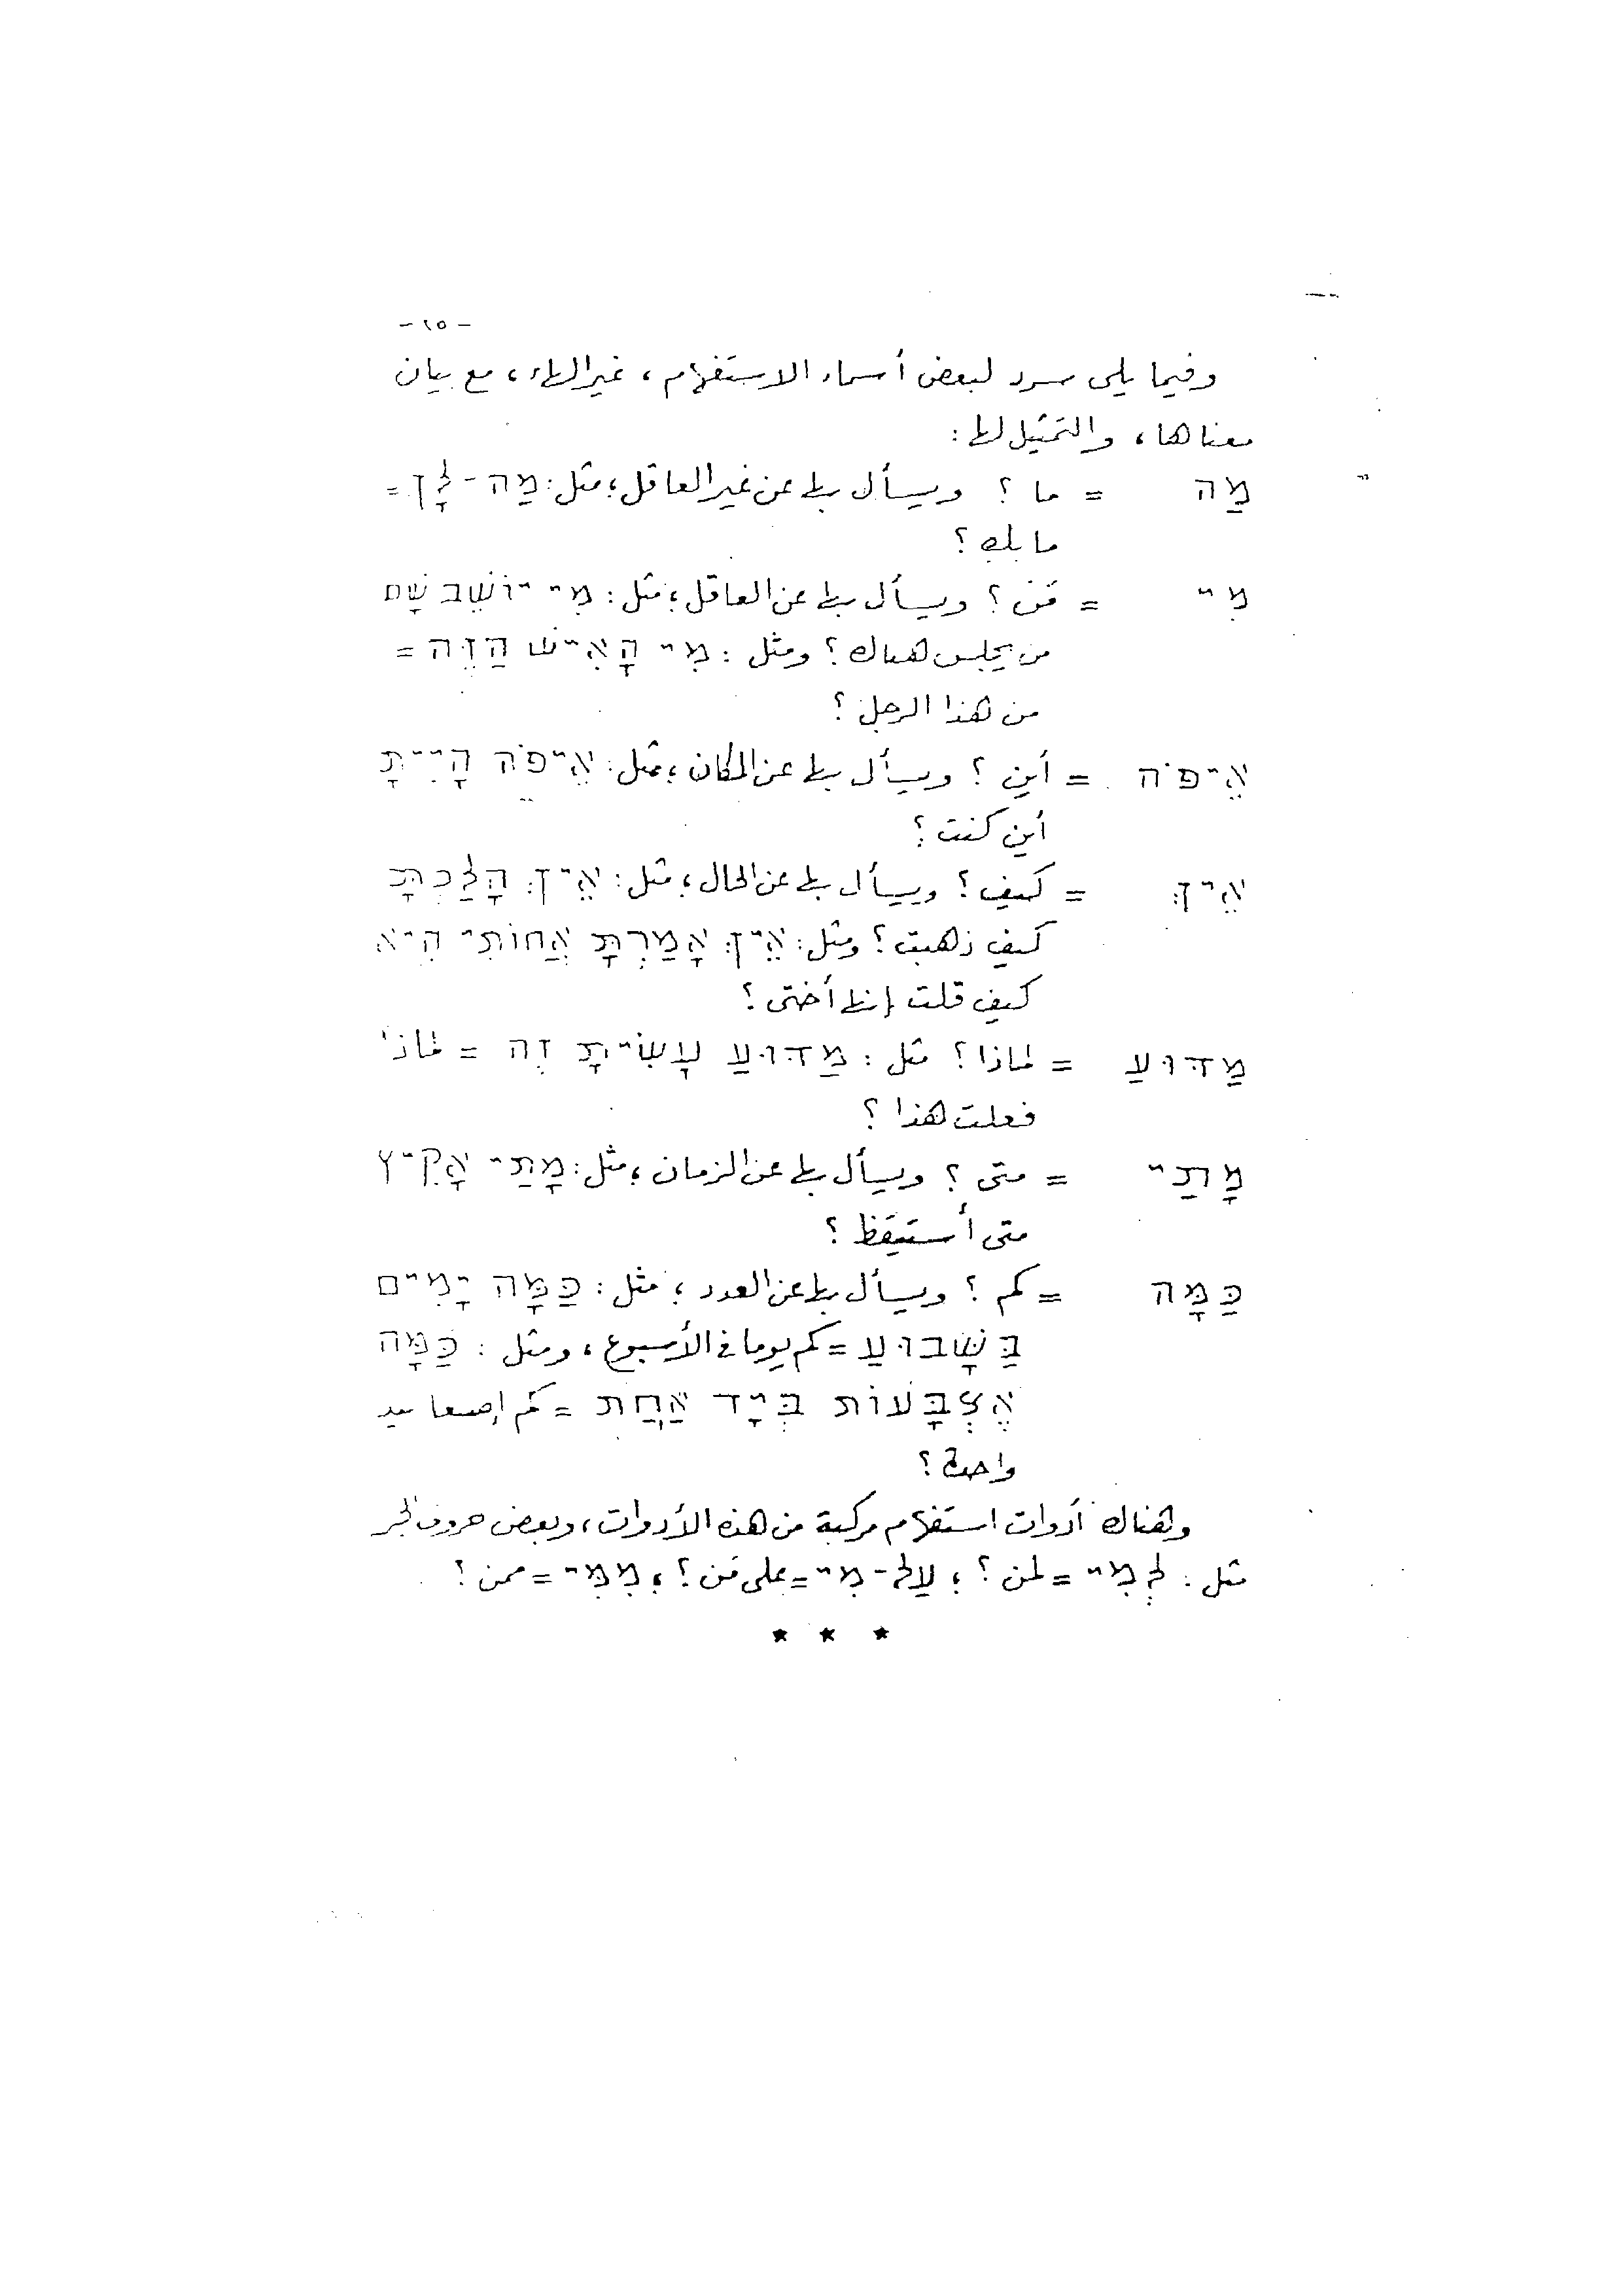 - ٢٥ -
وفيما يلى سرد لبعض أسماء الاستفهام، غير الهاء، مع بيان
معناها، والتمثيل لها:
מַה = ما؟ ويسأل بها عن غير العاقل؛ مثل: מַה-לָּךְ =
ما بك؟
מִי = مَن؟ ويسأل بها عن العاقل؛ مثل: מִי יוֹשֵׁב שָׁם
من يجلس هناك؟ ومثل: מִי הָאִישׁ הַזֶּה =
من هذا الرجل؟
אֵיפֹה = أين؟ ويسأل بها عن المكان؛ مثل: אֵיפֹה הָיִיתָ
أين كنت؟
אֵיךְ = كيف؟ ويسأل بها عن الحال؛ مثل: אֵיךְ הָלַכְתָּ
كيف ذهبت؟ ومثل: אֵיךְ אָמַרְתָּ אֲחוֹתִי הִיא
كيف قلت إنها أختى؟
מַדּוּעַ = لماذا؟ مثل: מַדּוּעַ עָשִׂיתָ זֶה = لماذا
فعلت هذا؟
מָתַי = متى؟ ويسأل بها عن الزمان؛ مثل: מָתַי אָקִיץ
متى أستيقظ؟
כַּמָּה = كم؟ ويسأل بها عن العدد؛ مثل: כַּמָּה יָמִים
בַּשָּׁבוּעַ = كم يوما فى الأسبوع، ومثل: כַּמָּה
אֶצְבָּעוֹת בְּיָד אַחַת = كم إصبعا بيد
واحدة؟
وهناك أدوات استفهام مركبة من هذه الأدوات، وبعض حروف الجر
مثل: לְמִי = لمن؟؛ עַל-מִי = على مَن؟؛ מִמִּי = ممن؟
* * *